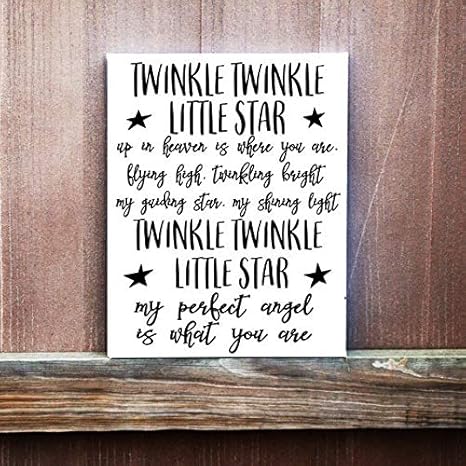 TWINKLE TWINKLE
LITTLE STAR
up in heaven is where you are.
flying high. twinkling bright
my guiding star. my shining light
TWINKLE TWINKLE
LITTLE STAR
my perfect angel
is what you are